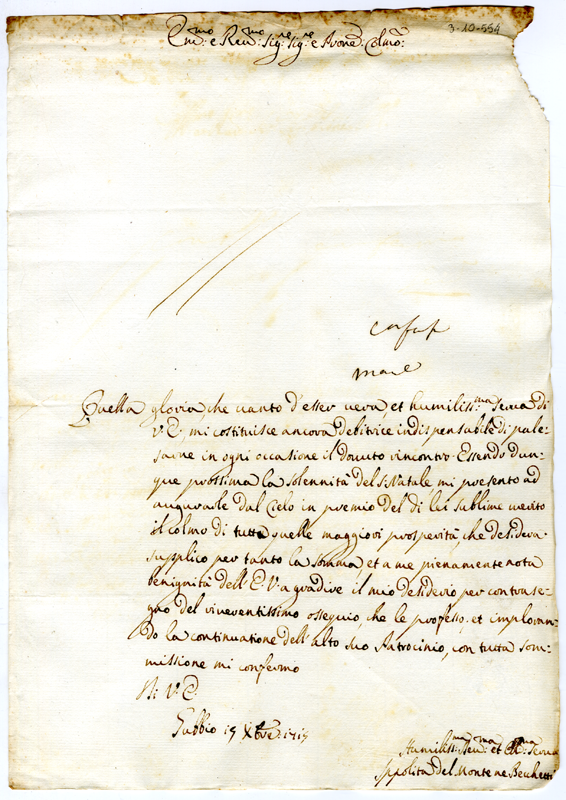 3-10-554
Em:mo e Rev:mo Sig:re Sig:re e Prone: Colmo:
Quella gloria che vanto d'esser vera, et humiliss:ma serva di
V. E., mi costituisce ancora debitrice indispensabile di pale-
sarne in ogni occasione il dovuto rincontro. Essendo dun-
que prossima la solennità del S. Natale, mi presento ad
augurarle dal Cielo in premio del di lei sublime merito
il colmo di tutte quelle maggiori prosperità, che desidera
supplico per tanto la somma, et a me pienamente nota
benignità dell'E. V. a gradire il mio desiderio per contrase-
gno del riverentissimo ossequio, che le professo, et imploran-
do la continuatione dell'alto suo Patrocinio, con tutta som-
missione mi confermo
Di V. E.
Gubbio 15 Xbre 1715
Humiliss:ma Dev:ma et Obl:ma Serva
Ippolita del Monte ne Becchetti